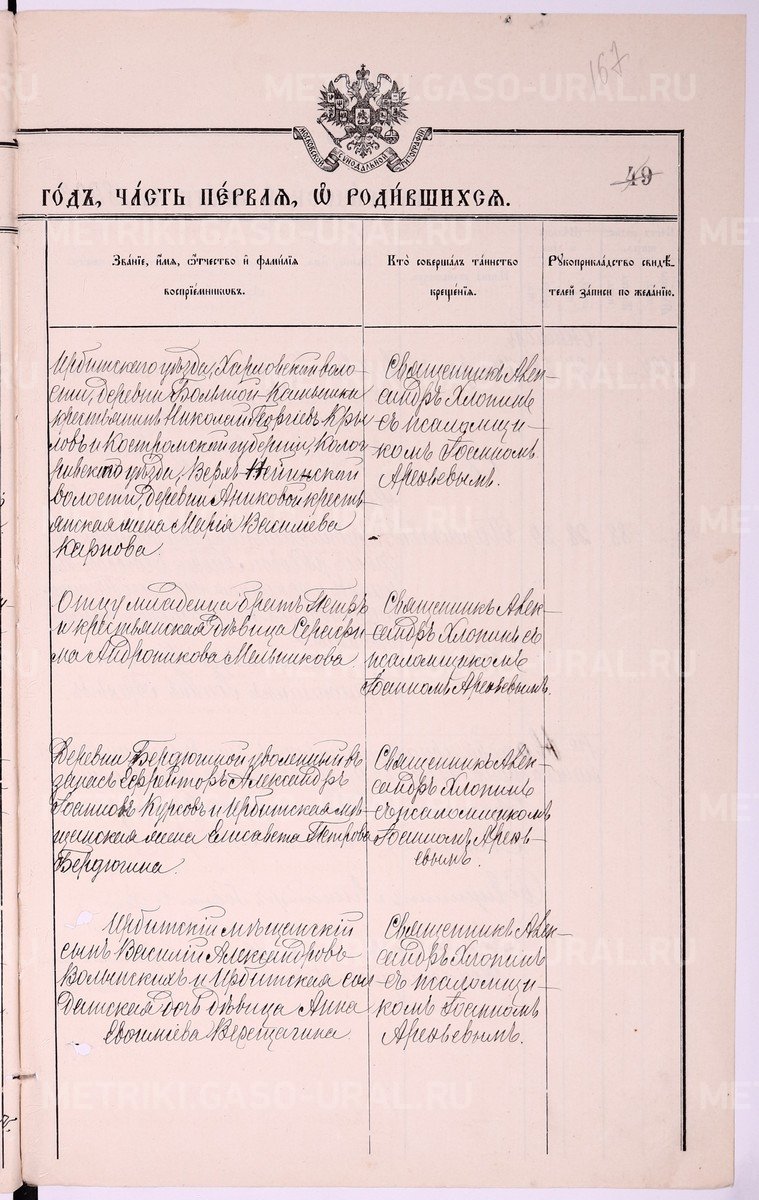 167
МОСКОВСКОЙ СѶНОДАЛЬНОЙ ТИПОГРАФІИ
49
ГО́ДЪ, ЧА́СТЬ ПЕ́РВАѦ, Ѡ҆ РОДИ́ВШИХСѦ.
Зва́нїе, и҆́мѧ, ѻ҆́тчество и҆ фами́лїѧ
воспрїе́мниковъ.
Кто̀ соверша́лъ та́инство
креще́нїѧ.
Рꙋкоприкла́дство свидѣ́-
телей за́писи по жела́нїю.
Ирбитскаго уѣзда, Харловской воло-
сти, деревни Большой Какшики
крестьянинъ Николай Георгіевъ Кры-
ловъ и Костромской губерніи, Колог-
ривскаго уѣзда, Верх-
волости, деревни Аниковой кресть-
янская жена Марія Василіева
Карпова.
Священникъ Алек-
сандръ Хлопинъ
съ псаломщи-
комъ Іоанномъ
Арефьевымъ.
Отцу младенца братъ Петръ
и крестьянская дѣвица Серафи-
ма Андроникова Мельникова.
Священникъ Алек-
сандръ Хлопинъ съ
псаломщикомъ
Іоанномъ Арефьевымъ.
Деревни Бердюгиной уволенный въ
запасъ Ефрейторъ Александръ
Іоанновъ Курсовъ и Ирбитская мѣ-
щанская жена Елисавета Петрова
Бердюгина.
Священникъ Алек-
сандръ Хлопинъ
съ псаломщикомъ
Іоанномъ Арефь-
евымъ.
Ирбитскій мѣщанскій
сынъ Василій Александровъ
Волынскихъ и Ирбитская сол-
датская дочь дѣвица Анна
Евфиміева Верещагина.
Священникъ Алек-
сандръ Хлопинъ
съ псаломщи-
комъ Іоанномъ
Арефьевымъ.
METRIKI.GASO-URAL.RU